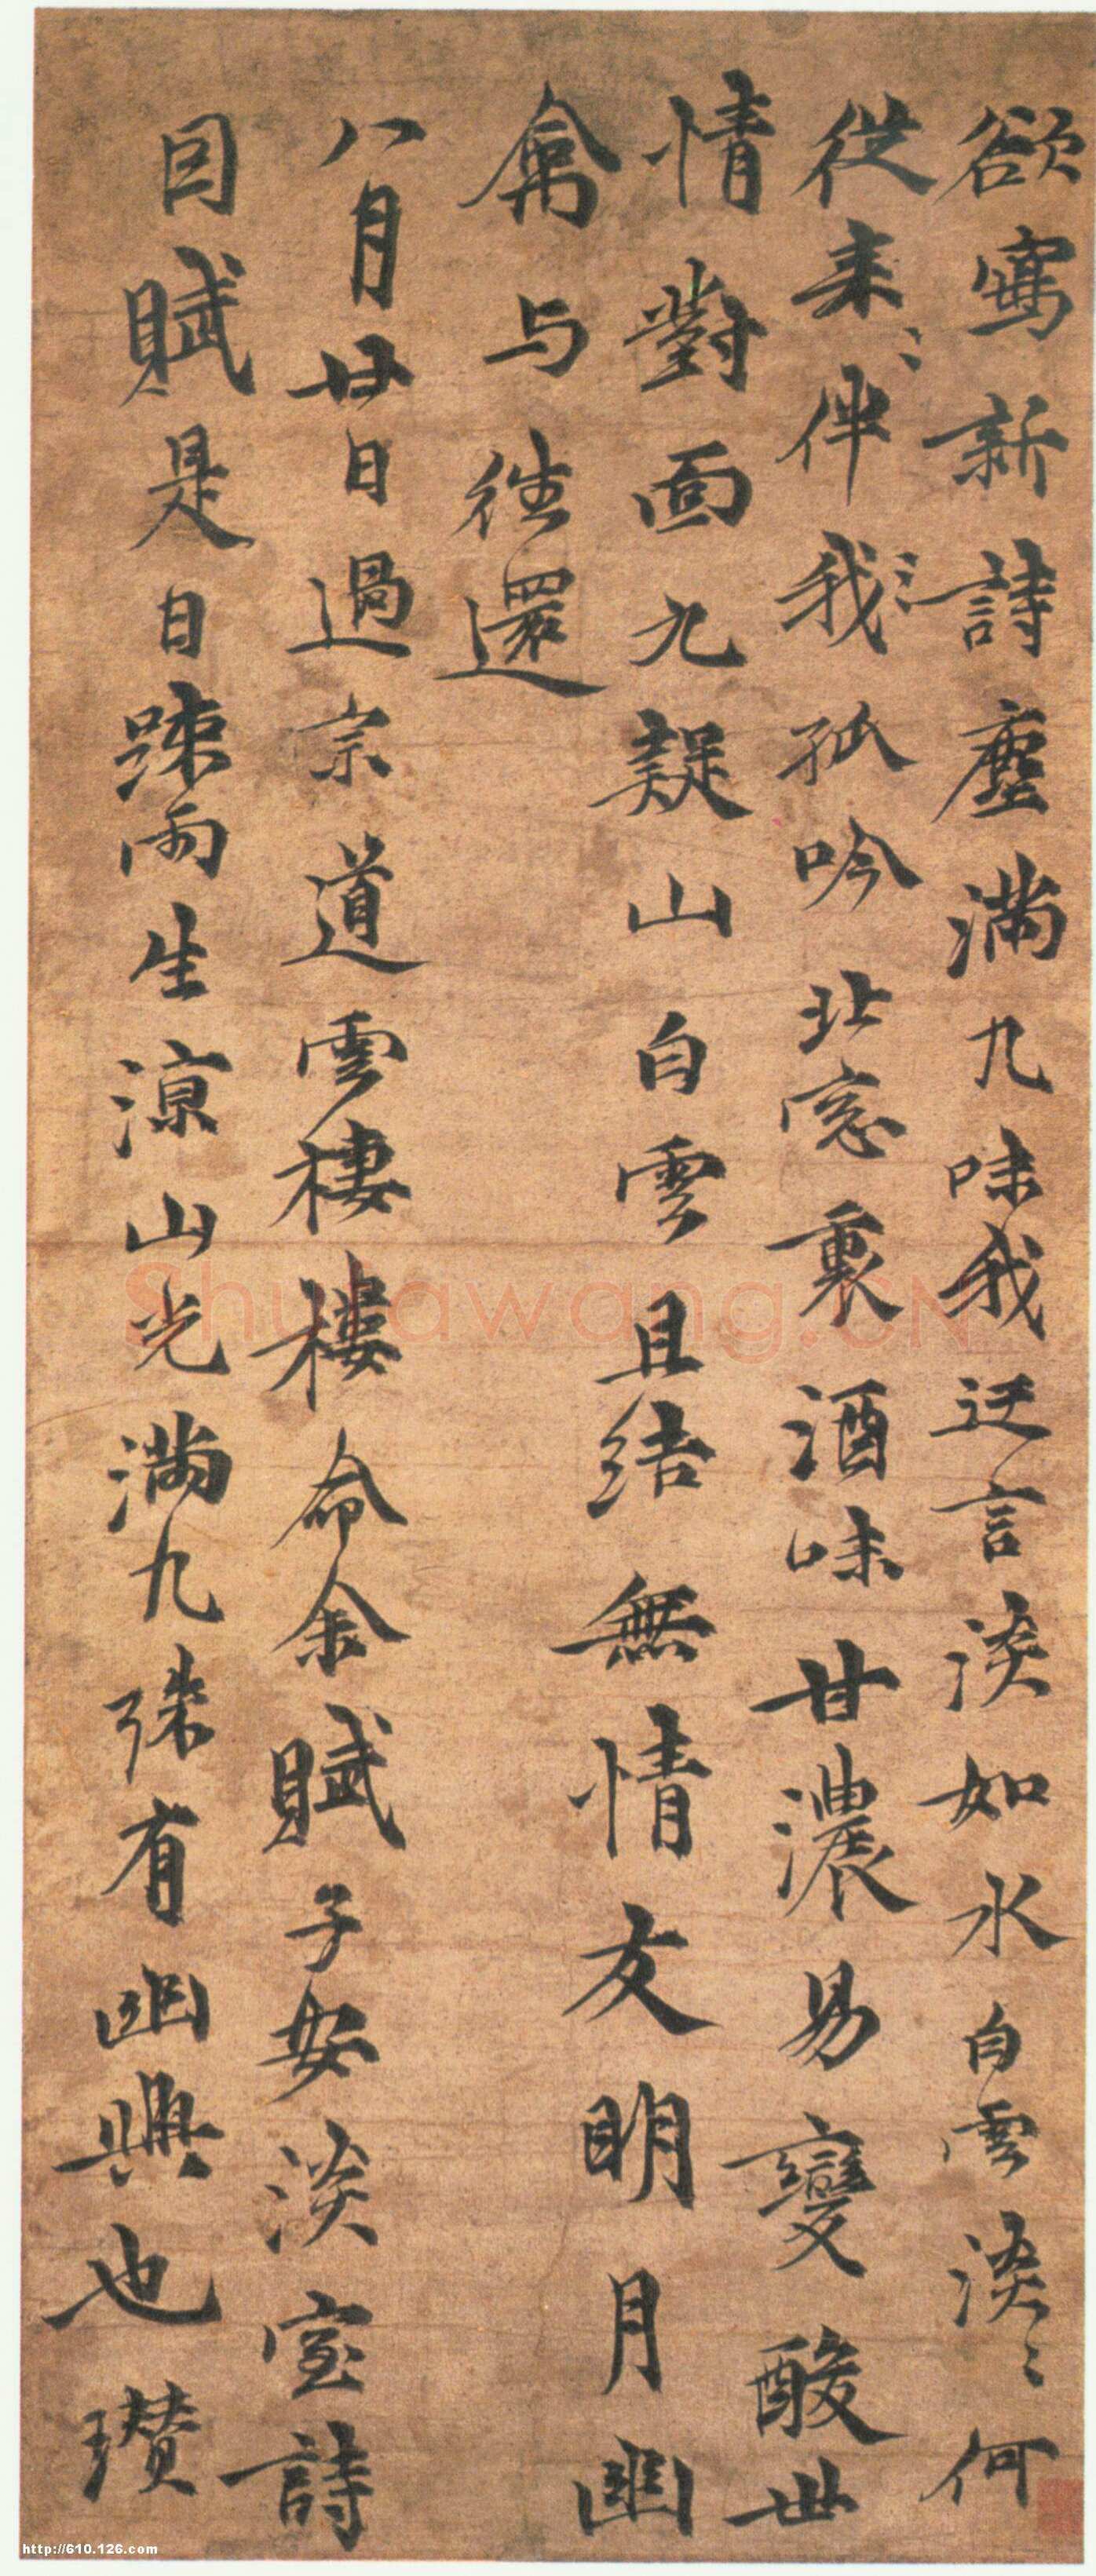 欲寫新詩塵滿几味我迂言淡如水白雲淡〻何
從來〻伴我孤吟北窓裏酒味甘濃易變酸世
情對面九疑山白雲且結無情友明月幽
禽与往還
八月廿日過宗道雲棲樓命余賦子安淡室詩
因賦是日疎雨生涼山光滿几殊有幽興也瓚
Shufawang.CN
http://610.126.com